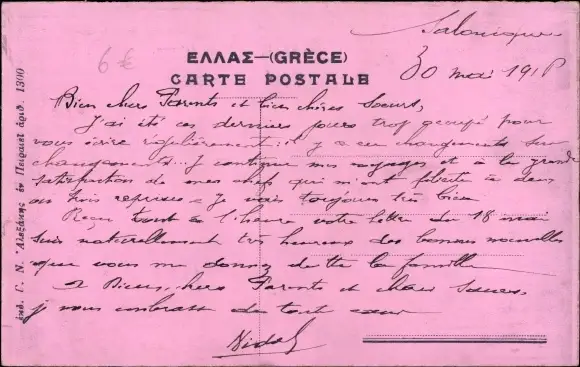 Salonique
6 €
30 mai 1918
ΕΛΛΑΣ—(GRÈCE)
CARTE POSTALE
Bien chers Parents et bien chères Soeurs,
J'ai été ces derniers jours trop occupé pour
vous écrire régulièrement: il y a eu changements sur
changements... J continue mes voyages et à la grande
satisfaction de mes chefs qui m'ont félicité à deux
ou trois reprises. Je vais toujours très bien
Reçu tout à l'heure votre lettre du 18 mai
suis naturellement très heureux des bonnes nouvelles
que vous me donnez de tte la famille
Biens chers Parents et chères Soeurs,
j vous embrasse de tout coeur
Vidal
ἐκδ. Γ. Ν. Ἀλεξάκης ἐν Πειραιεῖ ἀριθ. 1300